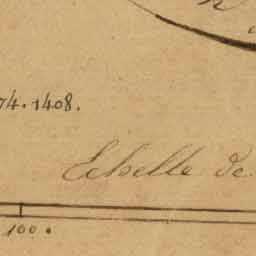 74.1408.
Echelle de
100.